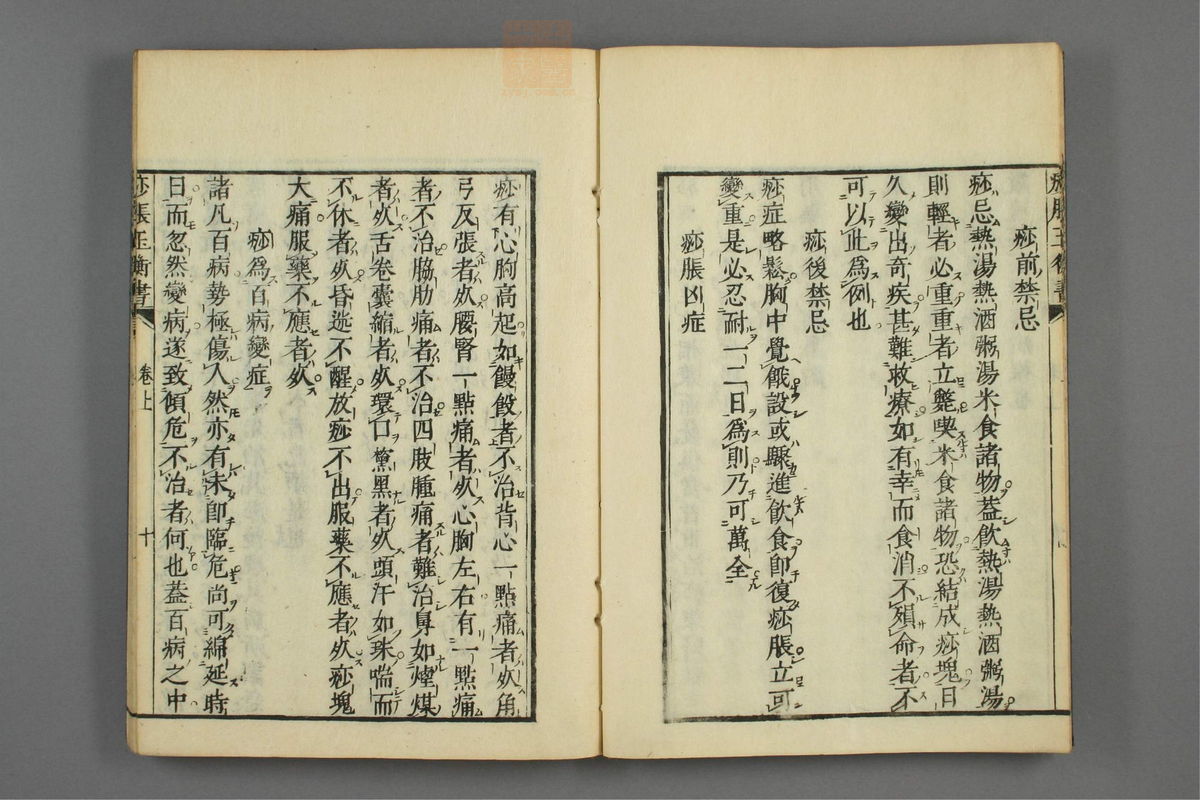 痧前禁忌
痧忌熱湯熱酒粥湯米食諸物蓋飲熱湯熱酒粥湯
則輕者必重重者立斃喫米食諸物恐結成痧塊日
久變出奇疾甚難救療如有幸而食消不殞命者不
可以此為例也
痧後禁忌
痧症略鬆胸中覺餓設或驟進飲食即復痧脹立可
變重是必忍耐一二日為則乃可萬全
痧脹凶症
痧有心胸高起如饅者不治背心一點痛者死角
弓反張者死腰腎一點痛者死心胸左右有一點痛
者不治脇肋痛者不治四肢腫痛者難治鼻如煙煤
者死舌卷囊縮者死環口黧黑者死頭汗如珠喘而
不休者死昏迷不醒放痧不出服藥不應者死痧塊
大痛服藥不應者死
痧為百病變症
諸凡百病勢極傷人然亦有未即臨危尚可綿延時
日而忽然變病遂致傾危不治者何也蓋百病之中
痧脹玉衡書
卷上
十